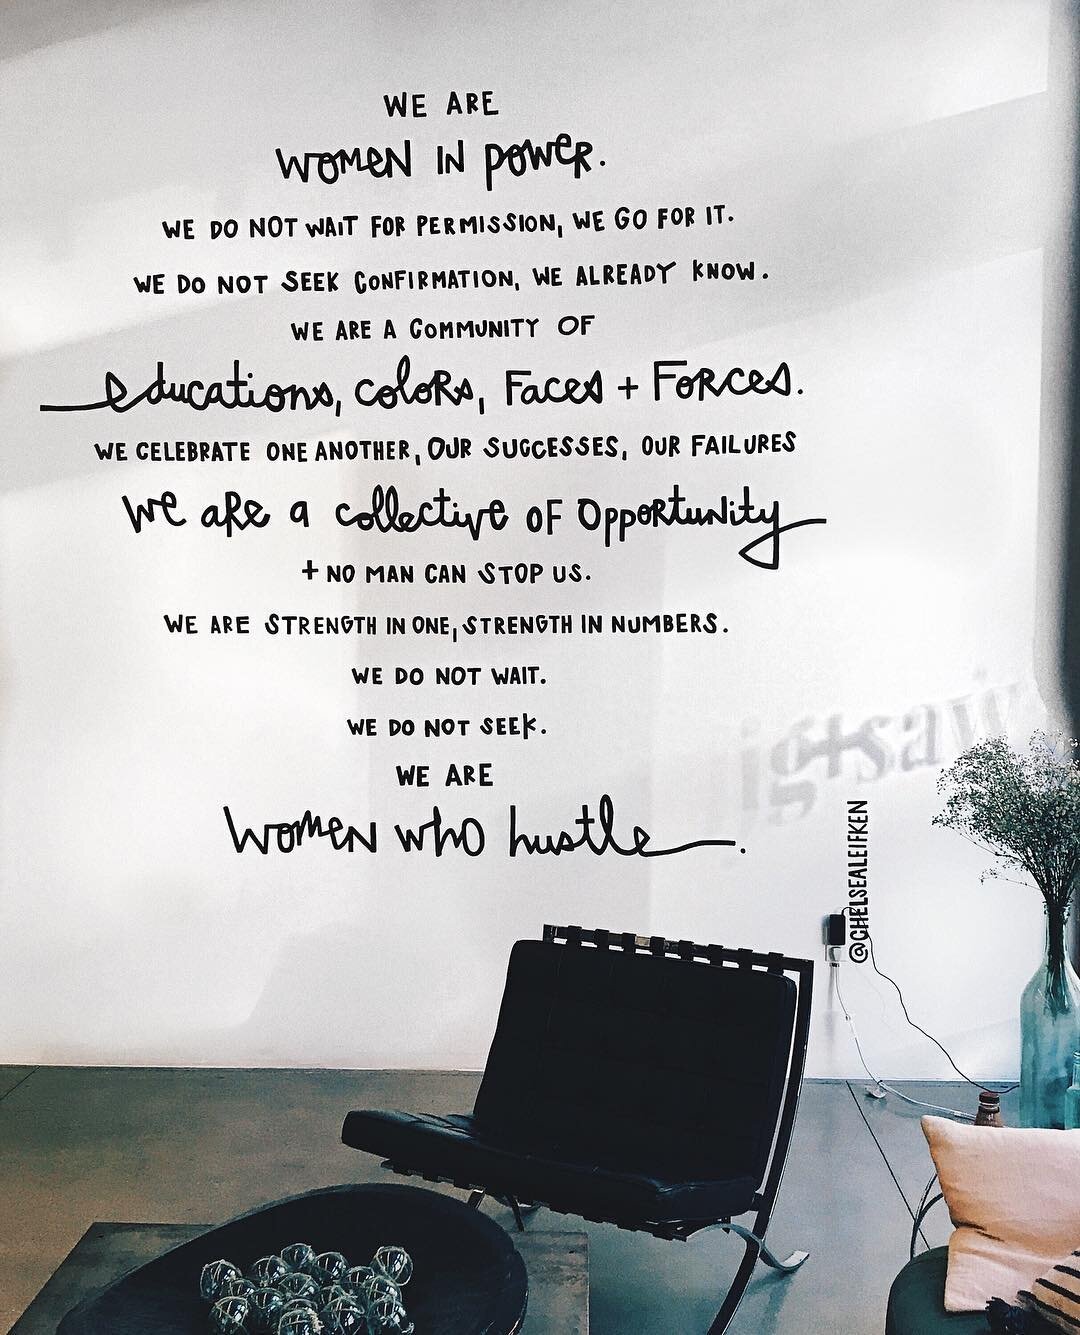 WE ARE
WOMEN IN POWER.
WE DO NOT WAIT FOR PERMISSION, WE GO FOR IT.
WE DO NOT SEEK CONFIRMATION, WE ALREADY KNOW.
WE ARE A COMMUNITY OF
educations, colors, Faces + Forces.
WE CELEBRATE ONE ANOTHER, OUR SUCCESSES, OUR FAILURES
We are a collective of opportunity
+ NO MAN CAN STOP US.
WE ARE STRENGTH IN ONE, STRENGTH IN NUMBERS.
WE DO NOT WAIT.
WE DO NOT SEEK.
WE ARE
women who hustle.
jigsaw
@CHELSEALEIFKEN